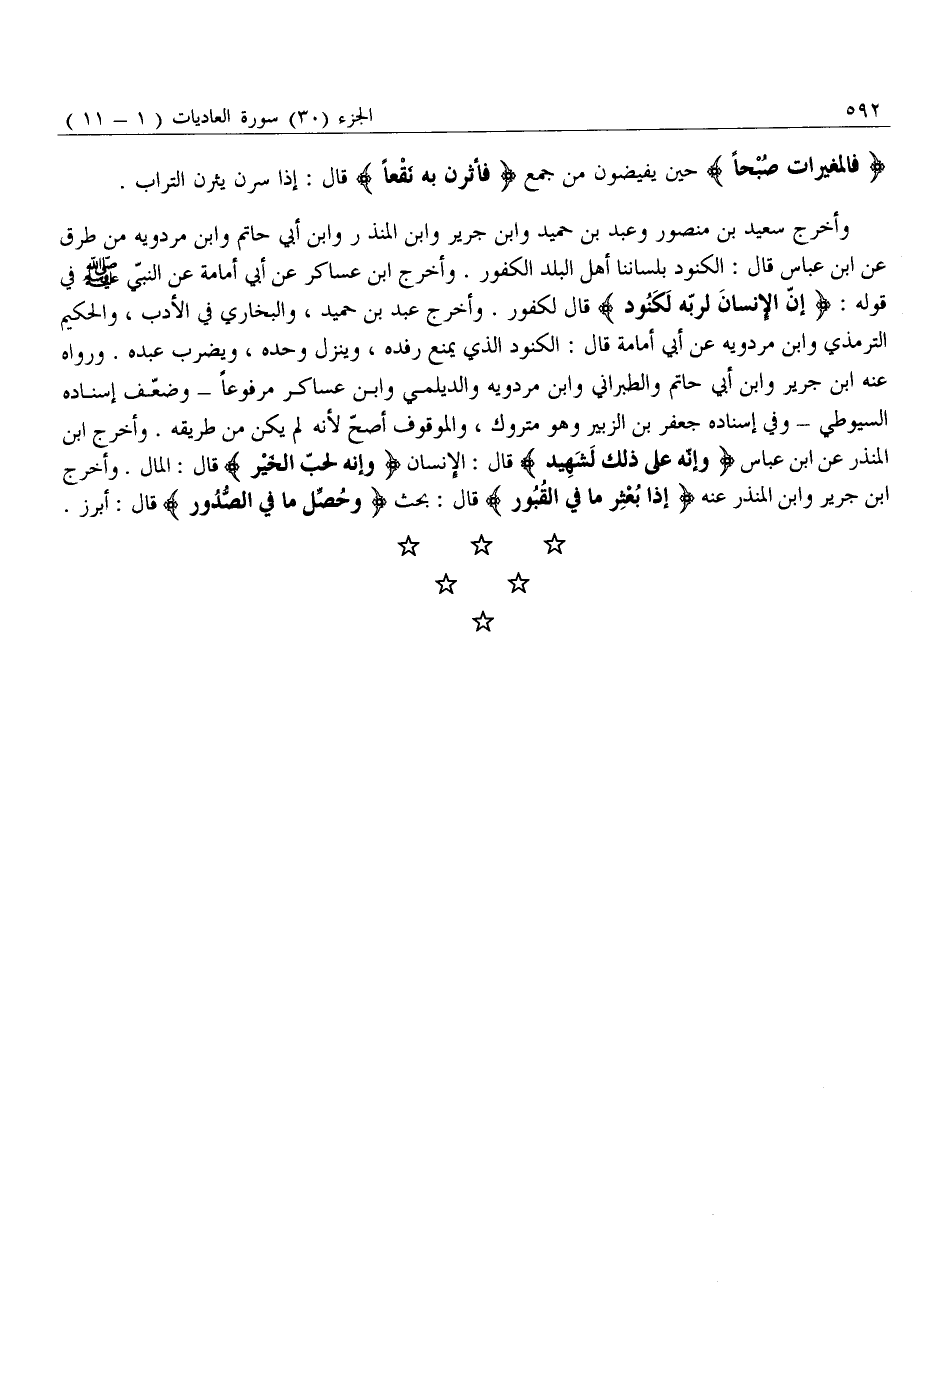 ٥٩٢ الجزء (٣٠) سورة العاديات ( ١ – ١١ )
﴿ فالمغيرات صُبْحاً ﴾ حين يفيضون من جمع ﴿ فأثرن به نَقْعاً ﴾ قال : إذا سرن يثرن التراب .
وأخرج سعيد بن منصور وعبد بن حميد وابن جرير وابن المنذ ر وابن أبي حاتم وابن مردويه من طرق
عن ابن عباس قال : الكنود بلساننا أهل البلد الكفور . وأخرج ابن عساكر عن أبي أمامة عن النبيّ ﷺ في
قوله : ﴿ إنّ الإنسانَ لربّه لَكَنُود ﴾ قال لكفور . وأخرج عبد بن حميد ، والبخاري في الأدب ، والحكيم
الترمذي وابن مردويه عن أبي أمامة قال : الكنود الذي يمنع رفده ، وينزل وحده ، ويضرب عبده . ورواه
عنه ابن جرير وابن أبي حاتم والطبراني وابن مردويه والديلمي وابن عساكر مرفوعاً – وضعّف إسناده
السيوطي – وفي إسناده جعفر بن الزبير وهو متروك ، والموقوف أصحّ لأنه لم يكن من طريقه . وأخرج ابن
المنذر عن ابن عباس ﴿ وإنّه على ذلك لَشَهِيد ﴾ قال : الإنسان ﴿ وإنه لحبّ الخَيْر ﴾ قال : المال . وأخرج
ابن جرير وابن المنذر عنه ﴿ إذا بُعْثِر ما في القُبُور ﴾ قال : بحث ﴿ وحُصِّل ما في الصُّدُور ﴾ قال : أبرز .